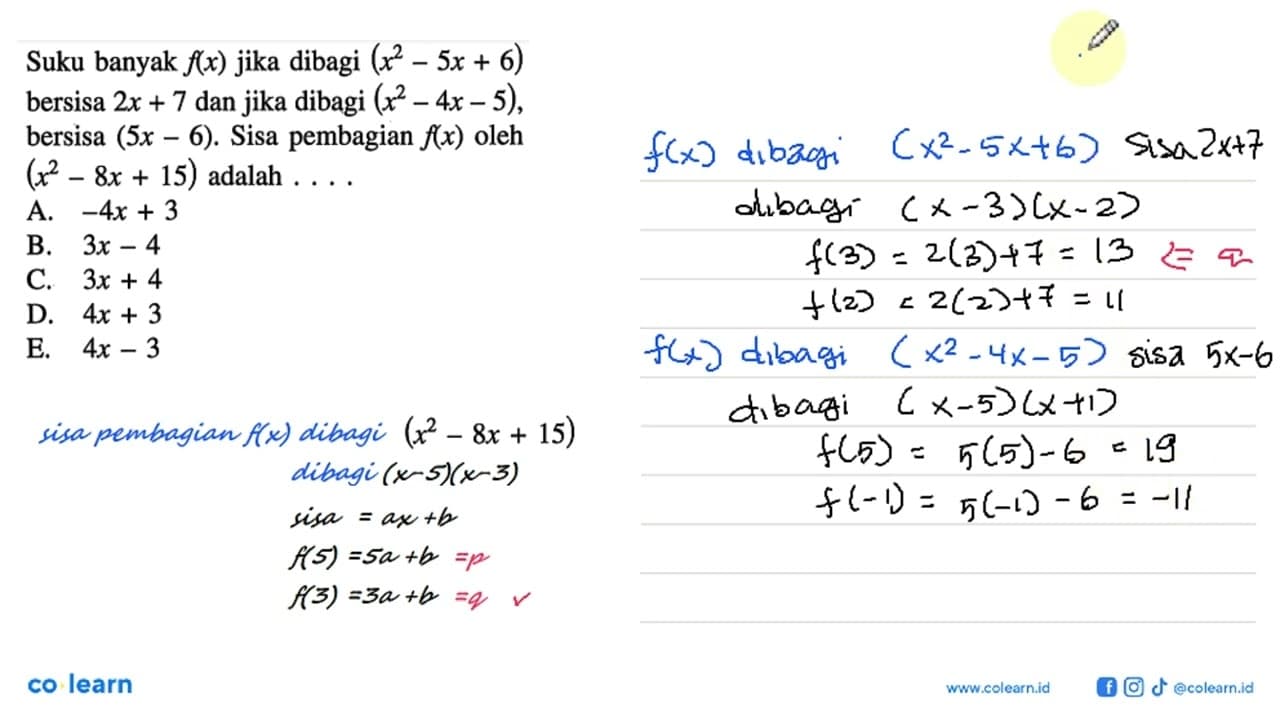 Suku banyak f(x) jika dibagi (x² – 5x + 6)
bersisa 2x + 7 dan jika dibagi (x² – 4x – 5),
bersisa (5x – 6). Sisa pembagian f(x) oleh
(x² – 8x + 15) adalah . . . .
A. –4x + 3
B. 3x – 4
C. 3x + 4
D. 4x + 3
E. 4x – 3
sisa pembagian f(x) dibagi (x² – 8x + 15)
dibagi (x-5)(x-3)
sisa = ax +b
f(5) =5a +b =p
f(3) =3a +b =q ✓
f(x) dibagi (x² - 5x+6) sisa 2x+7
dibagi (x-3)(x-2)
f(3) = 2(3)+7 = 13 ⇐ q
f(2) = 2(2)+7 = 11
f(x) dibagi (x² - 4x - 5) sisa 5x-6
dibagi (x-5)(x+1)
f(5) = 5(5)-6 = 19
f(-1) = 5(-1) - 6 = -11
co learn
www.colearn.id @colearn.id